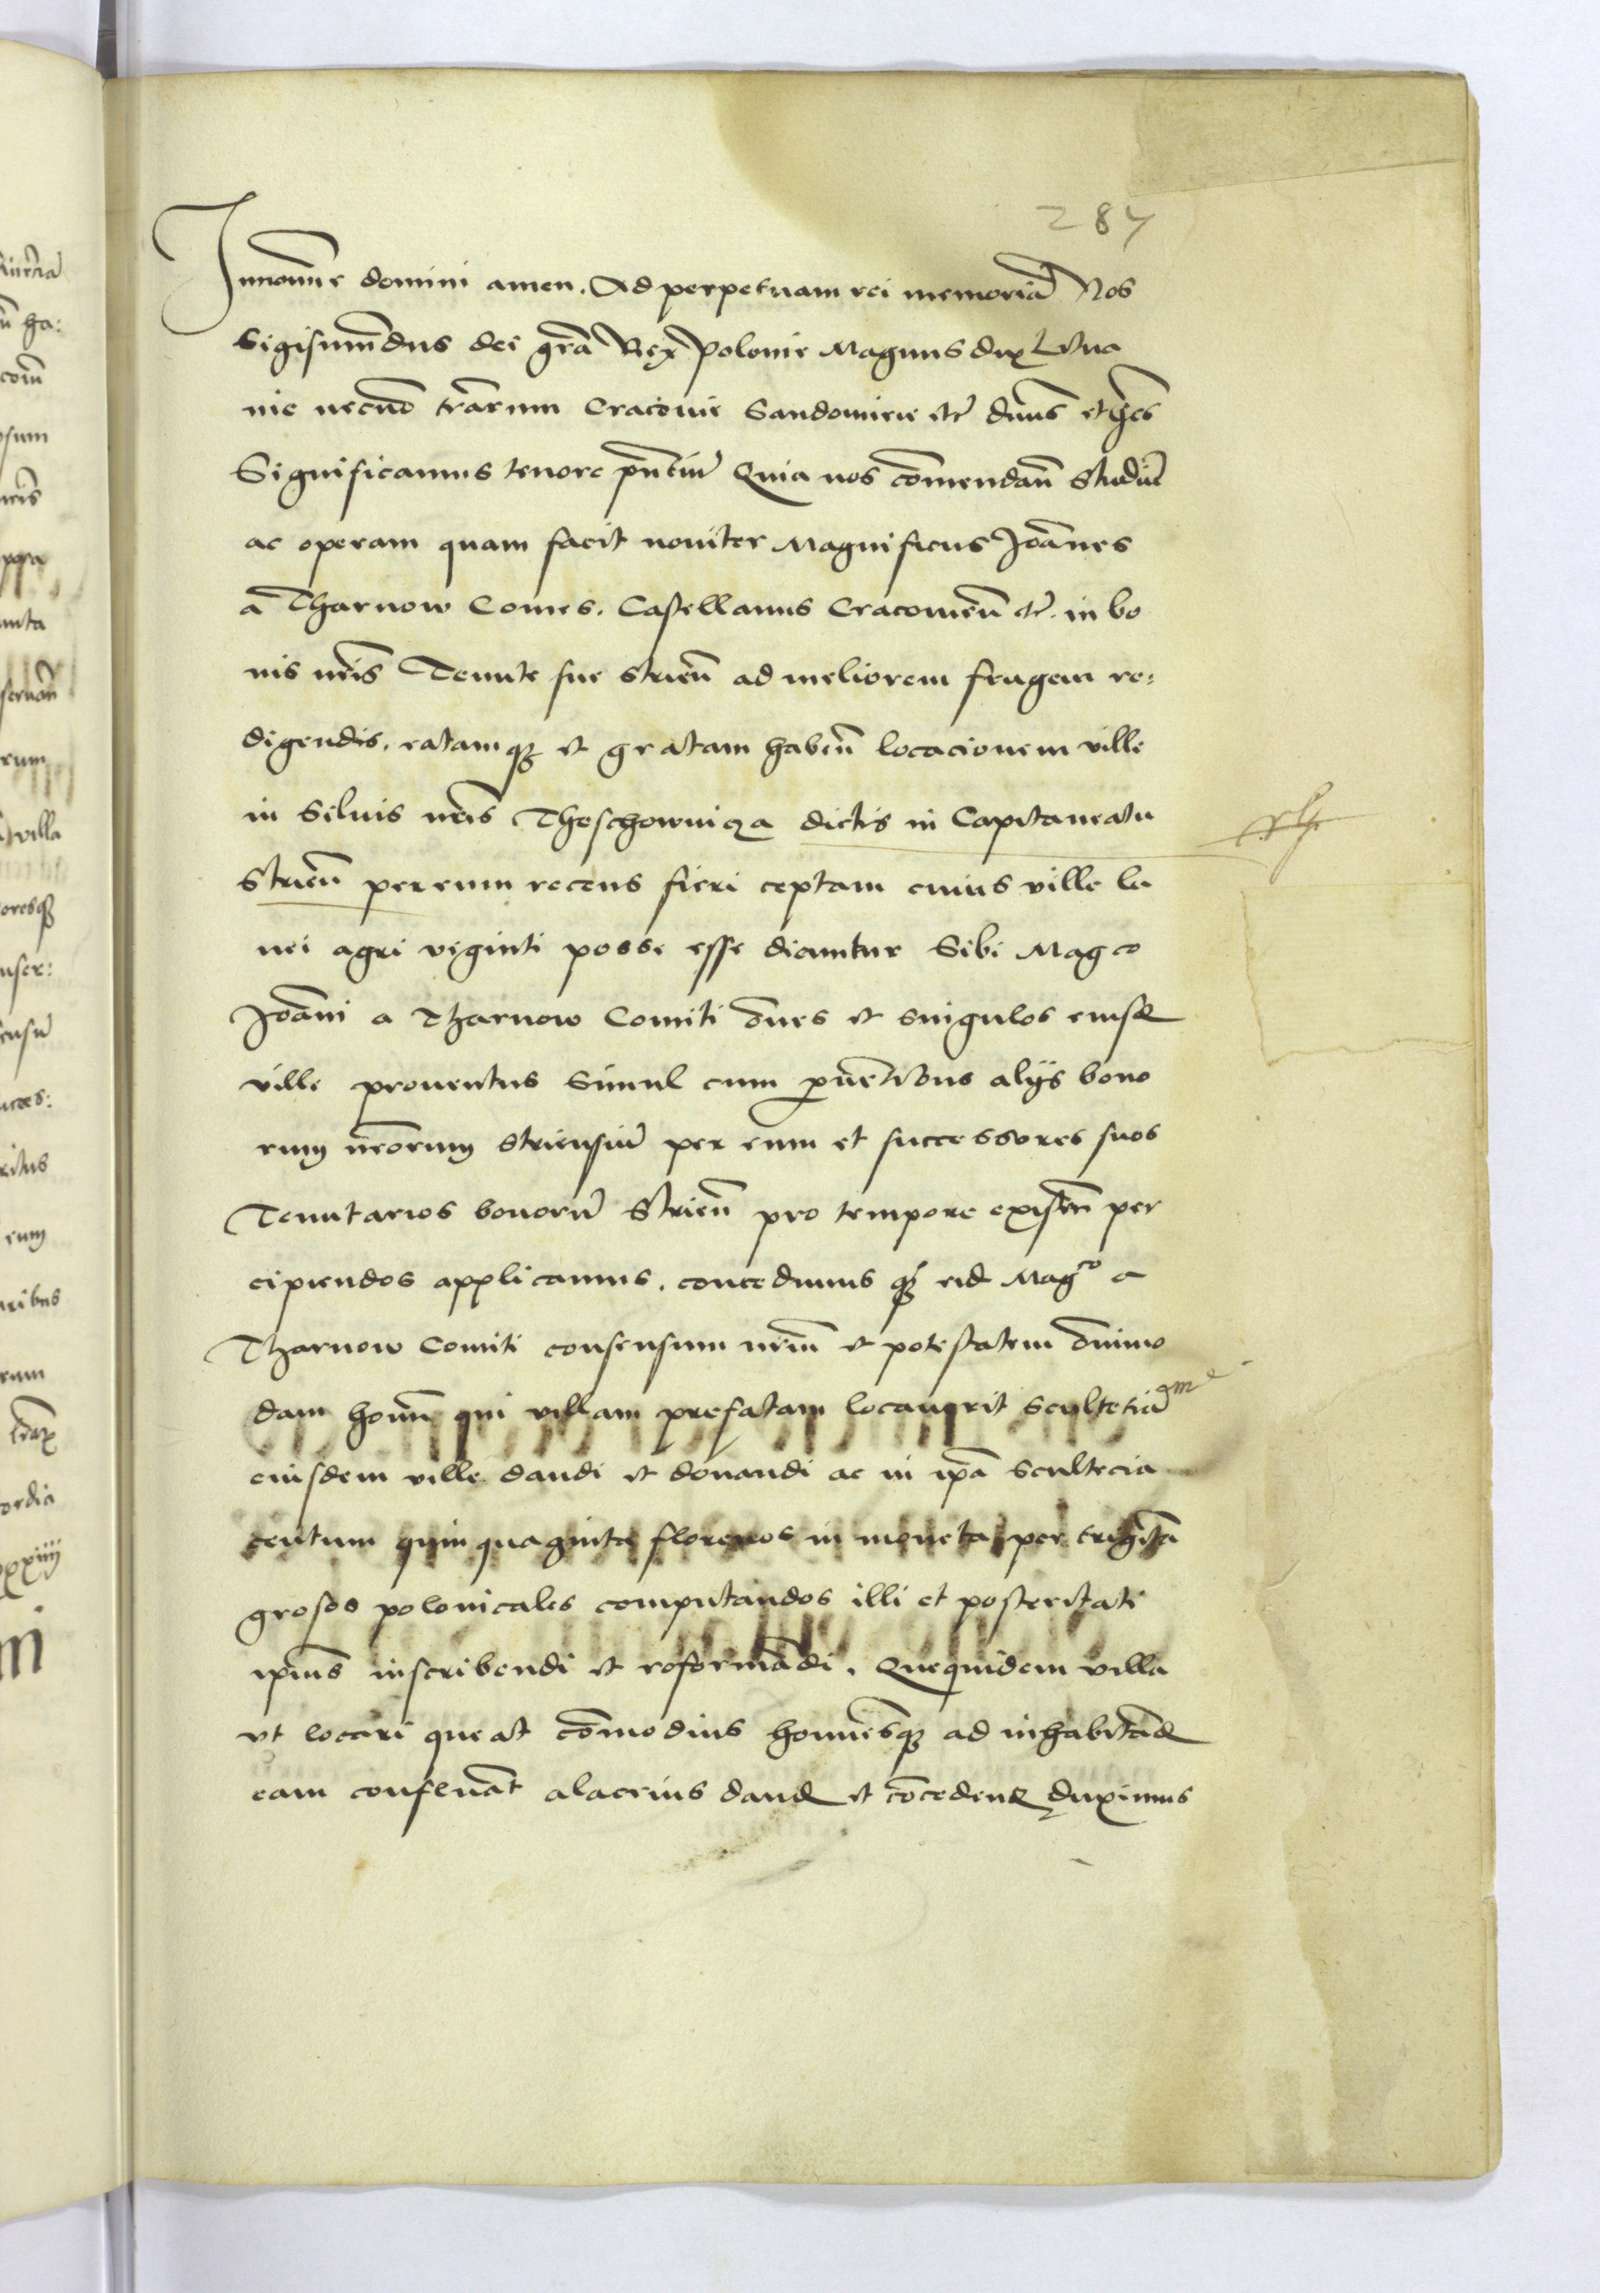 287
In nomine domini amen. Ad perpetuam rei memoriā Nos
Sigismūdus dei grā Rex Polonie Magnus dux Litua
nie necnō trārum Cracovie Sandomirie etc̄ dn̄us et heēs
Significamus tenore pn̄tiū Quia nos cōmendan̄ Studiū
ac operam quam facit noviter Magnificus Joānnes
a Tharnow Comes. Castellanus Cracovien̄ etc̄. in bo
nis nr̄is Tenute sue Strien̄ ad meliorem frugem re:
digendis. ratamqꝫ et gratam haben̄ locacionem ville
in Siluis nr̄is Thoschowniza dictis in Capitaneatu
Strien̄ per eum recens fieri ceptam cuius ville la
nei agri viginti posse esse dicuntur Sibi Mag co
Joāni a Tharnow Comiti ōnes et singulos eiusd
ville proventus simul cum ꝓventibus alijs bono
rum nr̄orum Striensiū per eum et successores suos
Tenutarios bonorū Strien̄ pro tempore existen̄ per
cipiendos applicamus. concedimus qꝫ eid Magco a
Tharnow Comiti consensum nr̄um et potestatem ōnimo
dam homī qui villam prefatam locauerit Scultetiā
eiusdem ville dandi et donandi ac in ip̄a Scultecia
centum quinquaginta florenos in moneta per trigīta
grosos polonicales computandos illi et posteritati
ip̄ius inscribendi et reformādi. Quequidem villa
vt locari queat cōmodius homīesqꝫ ad inhabitād
eam confluāt alacrius dand et cōcedend duximus